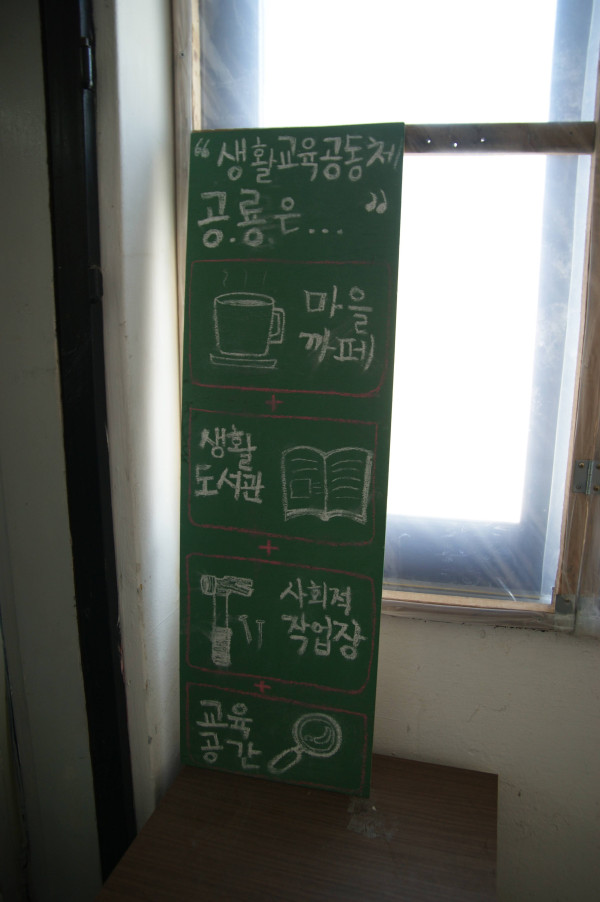 “생활교육공동체
공.룡은... ”
마을
까페
+
생활
도서관
+
사회적
작업장
+
교육
공간